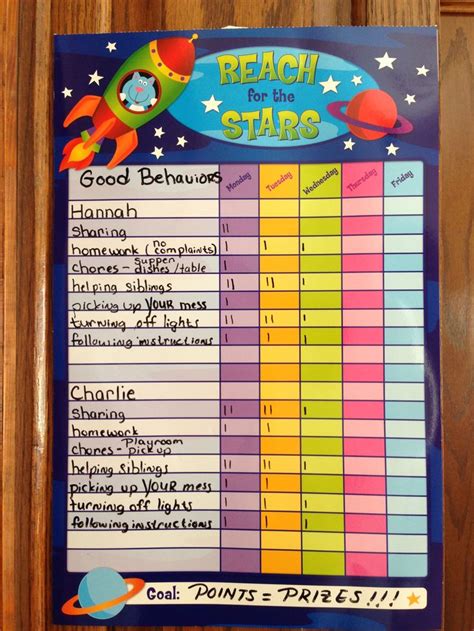 REACH
for the
STARS
Good Behaviors Monday Tuesday Wednesday Thursday Friday
Hannah
Sharing II
homework (no complaints) I I I
chores - supper dishes/table I
helping siblings II II I
picking up YOUR mess I
turning off lights II II I
following instructions I I I
Charlie
Sharing II II I
homework I
chores - Playroom pick up I
helping siblings II I I
picking up YOUR mess I
turning off lights I I I
following instructions I I I
Goal: POINTS = PRIZES!!!